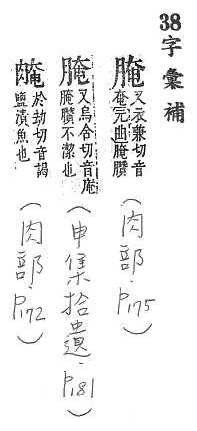 38字彙補
腌
又衣兼切音
奄元曲腌臢
（肉部·P175）
腌
又烏合切音庵
腌臢不潔也
（申集拾遺·P181）
腌
於劫切音謁
鹽漬魚也
（肉部·P172）